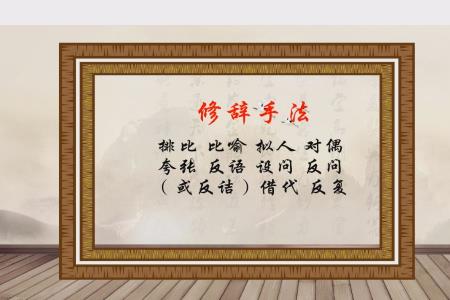 修辞手法
排比 比喻 拟人 对偶
夸张 反语 设问 反问
（或反诘）借代 反复